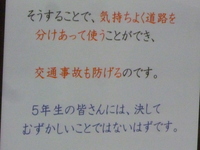 そうすることで、気持ちよく道路を
分けあって使うことができ、
交通事故も防げるのです。
5年生の皆さんには、決して
むずかしいことではないはずです。